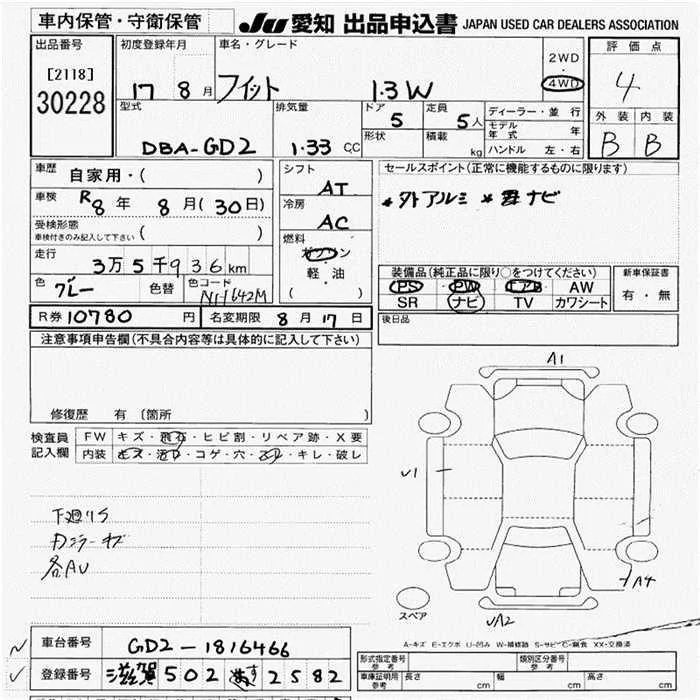 車内保管・守衛保管
JU 愛知 出品申込書 JAPAN USED CAR DEALERS ASSOCIATION
出品番号
[2118]
30228
初度登録年月
17 8 月
車名・グレード
フィット 1.3W
2WD
・
4WD
評価点
4
外装 内装
B B
型式
DBA-GD2
排気量
1.33 CC
ドア
5
定員
5人
形状
積載
kg
ディーラー・並行
モデル年式 年
ハンドル 左・右
車歴
自家用・( )
車検
R8年 8月(30日)
受検形態
車検付きのみ記入して下さい ( )
走行
3万5千936km
色
グレー
色替
色コード
NH642M
シフト
AT
冷房
AC
燃料
ガソリン
軽・油
( )
セールスポイント(正常に機能するものに限ります)
*外アルミ * ナビ
装備品(純正品に限り○をつけてください)
PS PW エアB AW
SR ナビ TV カワシート
新車保証書
有・無
R券 10780 円
名変期限 8月17日
後日品
注意事項申告欄(不具合内容等は具体的に記入して下さい)
修復歴 有 〔箇所 〕
検査員記入欄
FW キズ・飛石・ヒビ割・リペア跡・X要
内装 キズ・汚レ・コゲ・穴・・キレ・破レ
下廻りS
カラーキズ
各AU
A1
U1
A4
UA2
スペア
A-キズ E-エクボ U-凹み W-補修跡 S-サビ C-腐食 XX-交換済
車台番号
GD2-1816466
登録番号
滋賀 502 2582
形式指定番号
参考
類別区分番号
参考
車庫証明用
参考
長さ cm
幅 cm
高さ cm